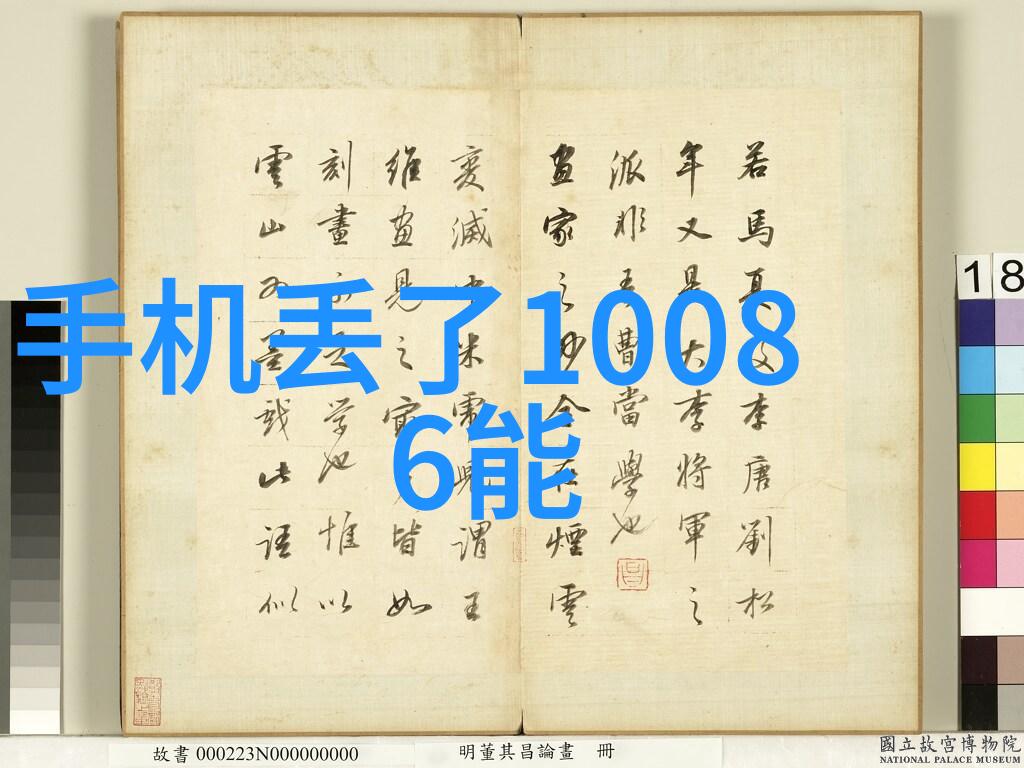 手机丢了1008
6能
若馬夏及李唐劉松
年又是大李將軍之
派非吾曹當學也
畫家之妙全在煙雲
變滅中米虎兒謂王
維畫見之最多皆如
刻畫不足學也惟以
雲山為墨戲此語似
18
故書 000223N000000000
明董其昌論畫 冊
國立故宮博物院
NATIONAL PALACE MUSEUM